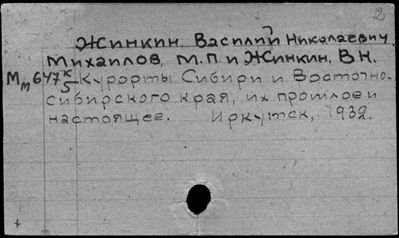 2
Жинкин, Василий Николаевич.
Михайлов, М. П. и Жинкин, В. Н.
Мм 647 к/5 Курорты Сибири и Восточно-
сибирского края, их прошлое и
настоящее. Иркутск, 1932.
+